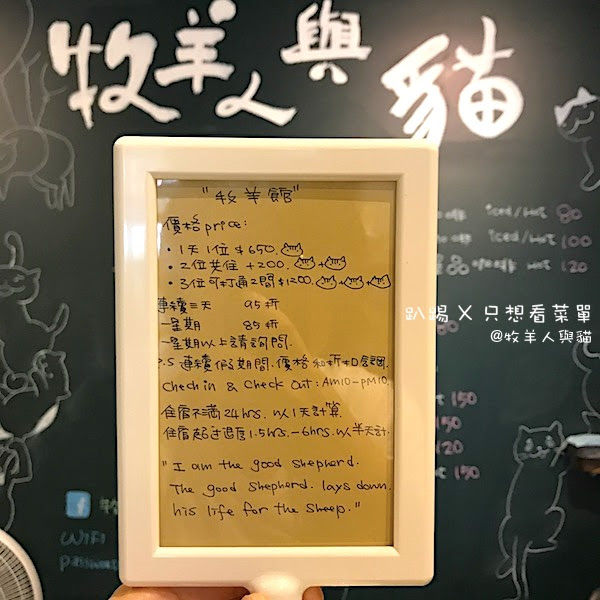 牧羊人與貓
"牧羊館"
價格price:
・1天1位 $650.
・2位共住 +200. +
・3位可打通2間 $1200. + +
連續三天 95折
一星期 85折
一星期以上請詢問.
P.S 連續假期間.價格和折扣另議.
Check in & Check out: AM10-PM10.
住宿不滿24hrs. 以1天計算.
住宿超過退房1.5hrs.-6hrs.以半天計.
"I am the good shepherd.
The good shepherd. lays down.
his life for the sheep."
iced/hot 80
iced/hot 100
咖啡 iced/hot 120
趴踢 X 只想看菜單
@牧羊人與貓
80
150
150
120
150
WIFI
password